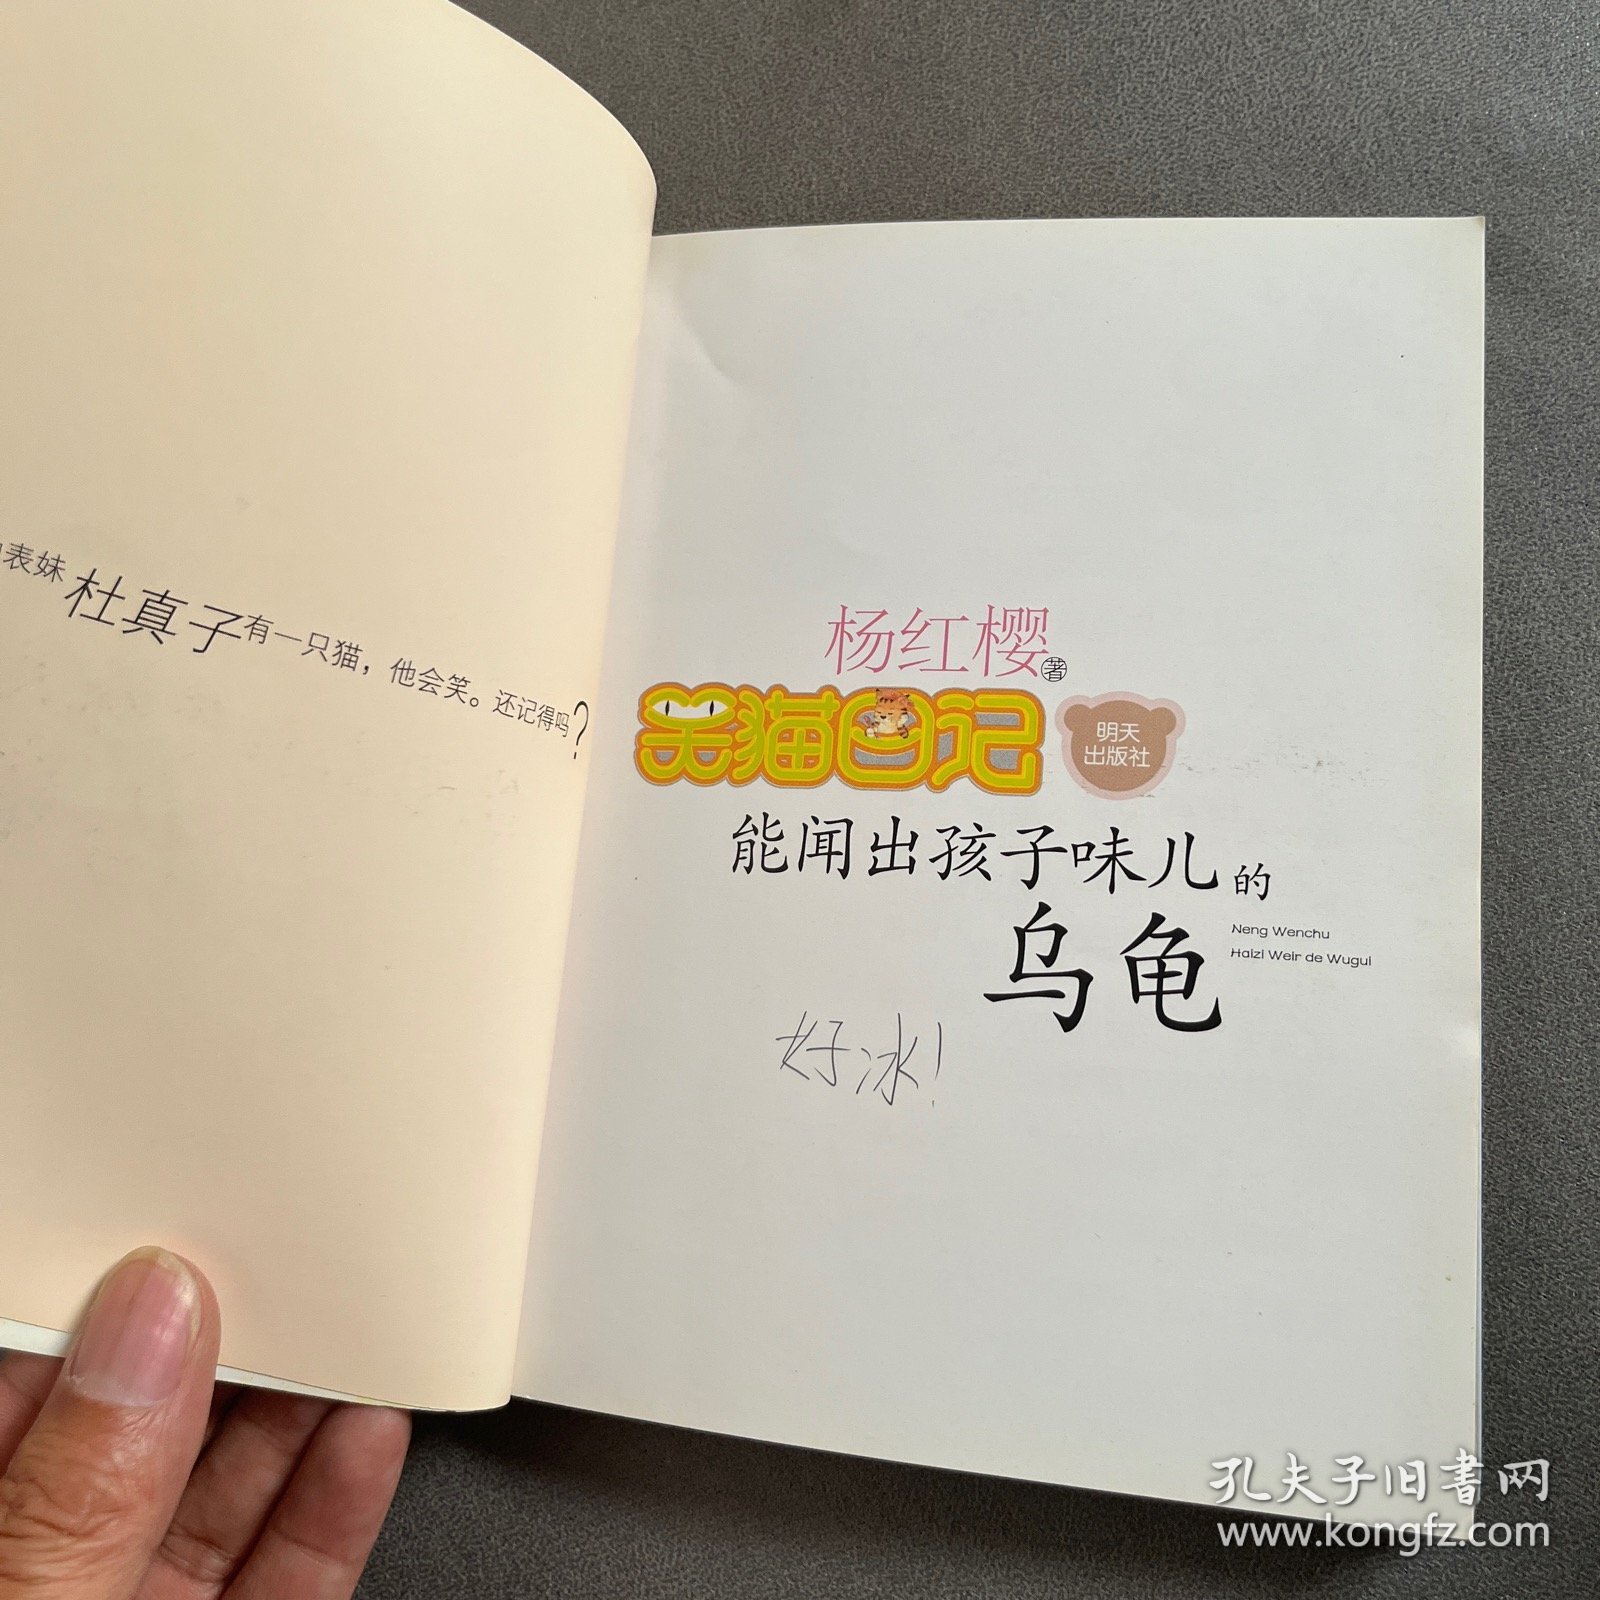 表妹杜真子有一只猫，他会笑。还记得吗？
杨红樱著
笑猫日记
明天
出版社
能闻出孩子味儿的
乌龟
Neng Wenchu
Haizi Weir de Wugui
好冰！
孔夫子旧书网
www.kongfz.com